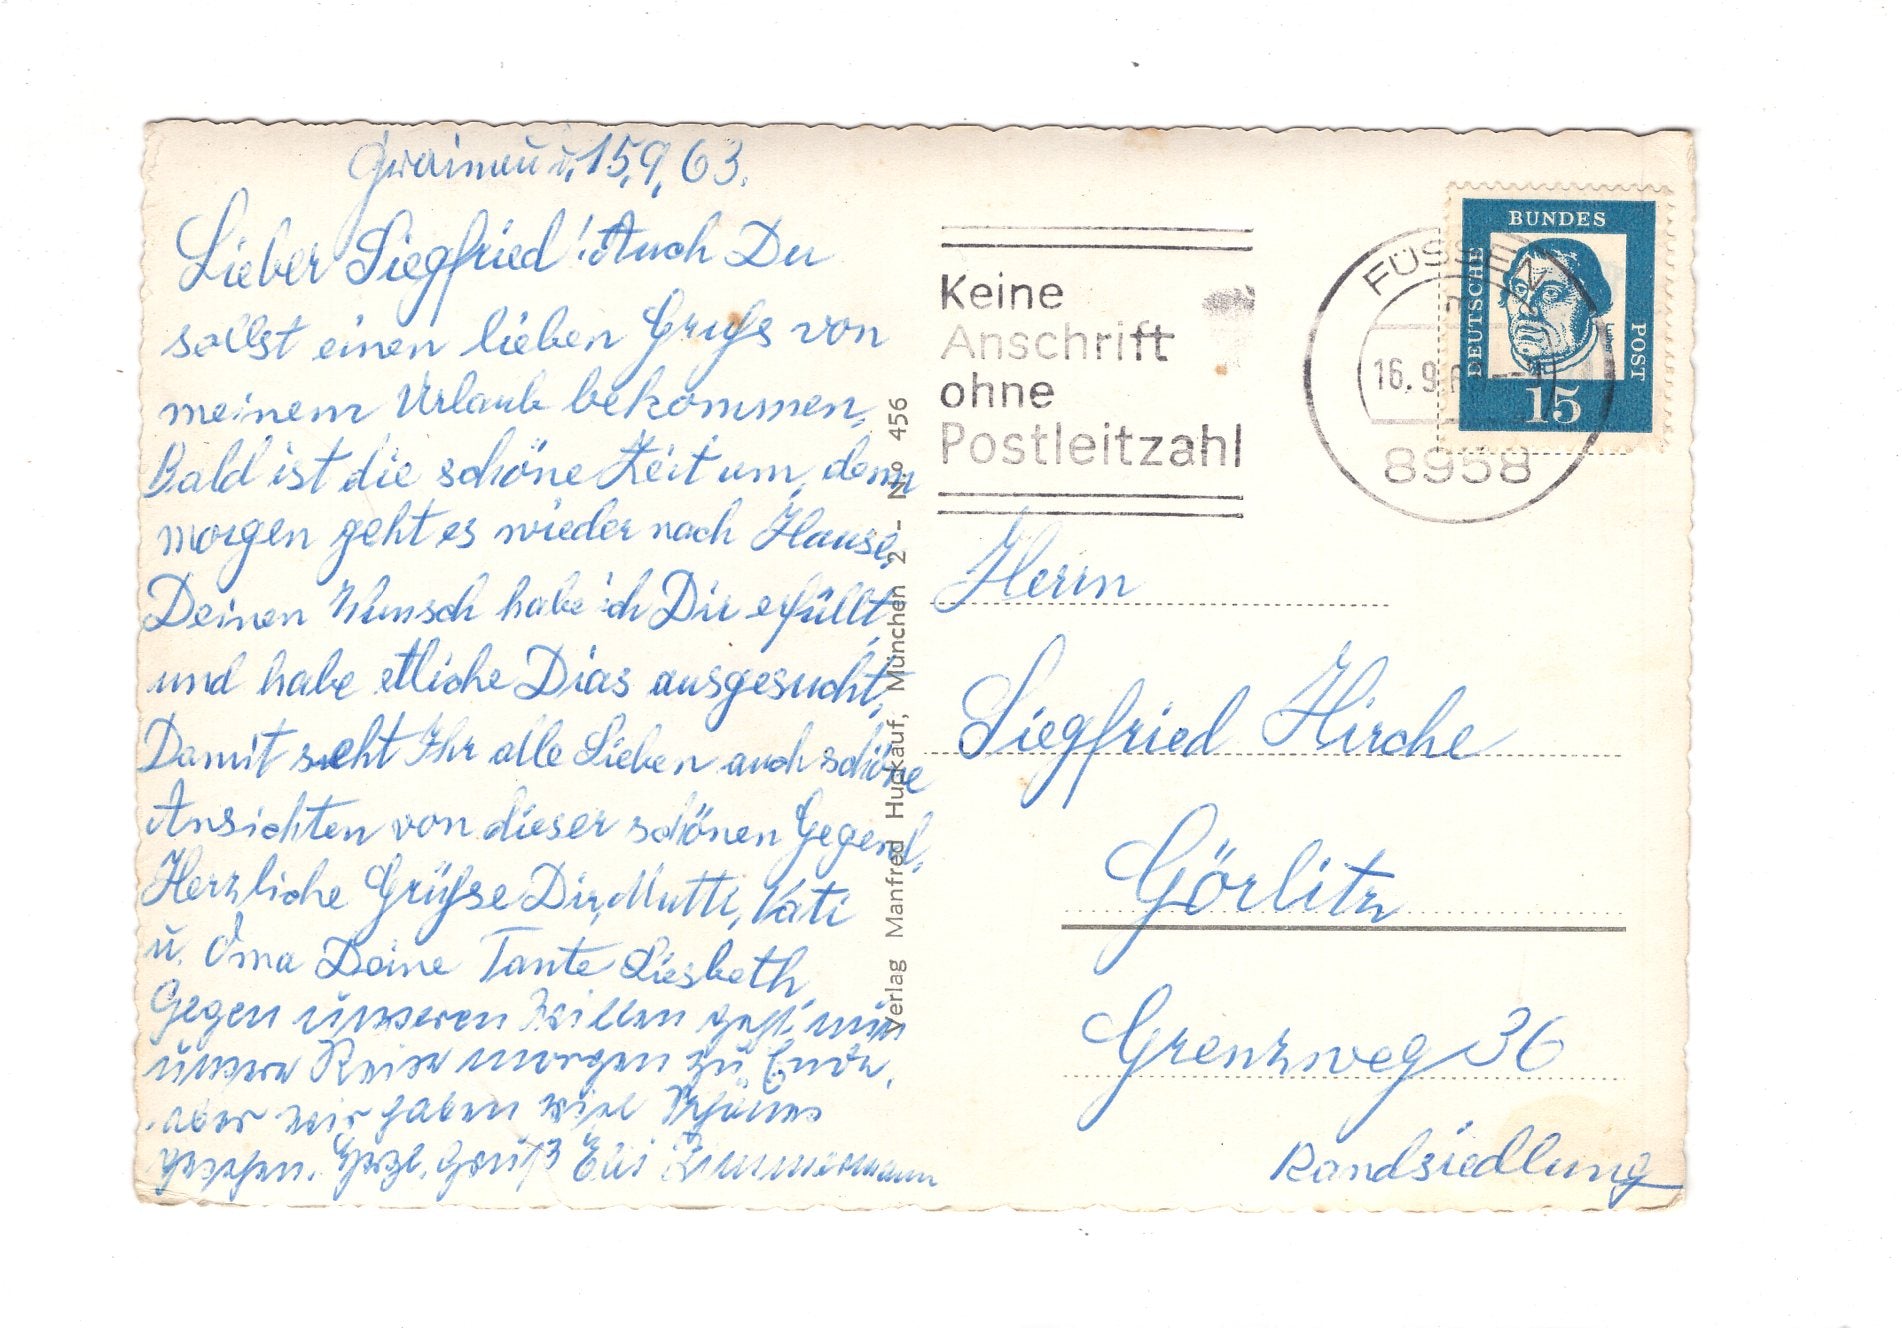 Grainau, 15.9.63.
Lieber Siegfried! Auch Du
sollst einen lieben Gruß von
meinem Urlaub bekommen.
Bald ist die schöne Zeit um, denn
morgen geht es wieder nach Hause.
Deinen Wunsch habe ich Dir erfüllt,
und habe etliche Dias ausgesucht.
Damit seht Ihr alle Lieben auch schöne
Ansichten von dieser schönen Gegend.
Herzliche Grüße Dir, Mutti, Kati
u. Oma Deine Tante Liesbeth.
Gegen unseren Willen geht nun
unsere Reise morgen zu Ende,
aber wir haben viel Schönes
gesehen. Herzl. Gruß Elli Zimmermann
Verlag Manfred Hugkauf, München 2 - No 456
Keine
Anschrift
ohne
Postleitzahl
FÜSSEN
16.9.6
8958
DEUTSCHE
BUNDES
POST
15
Herrn
Siegfried Hirche
Görlitz
Grenzweg 36
Randsiedlung